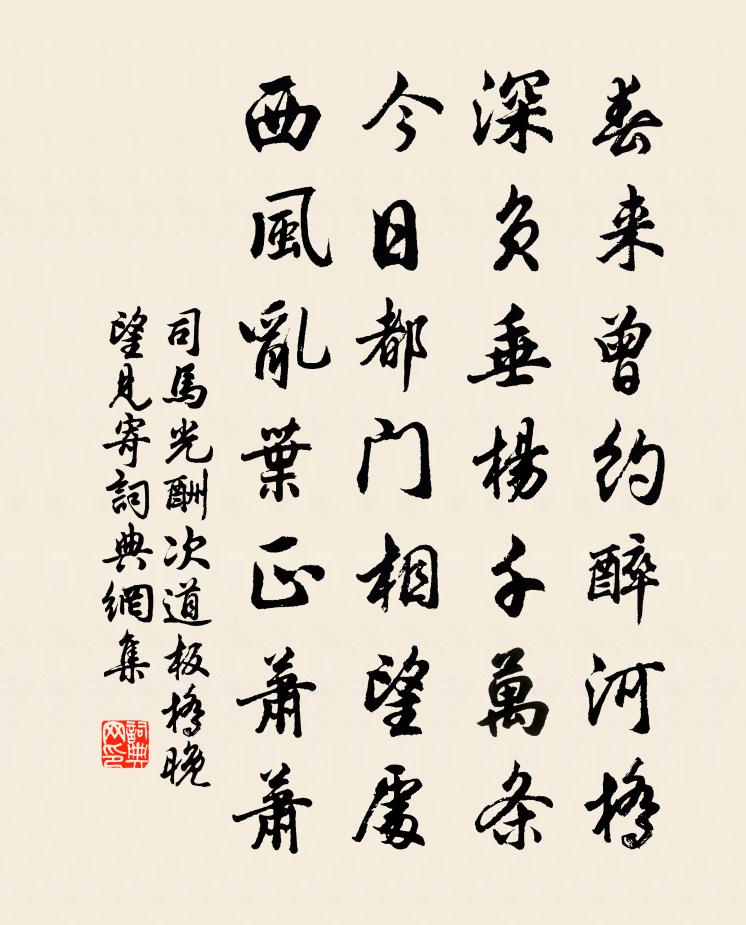 春来曾約醉河橋
深負垂楊千萬条
今日都门相望處
西風亂葉正蕭蕭
司馬光酬次道板橋晚
望見寄詞典網集
詞典网印